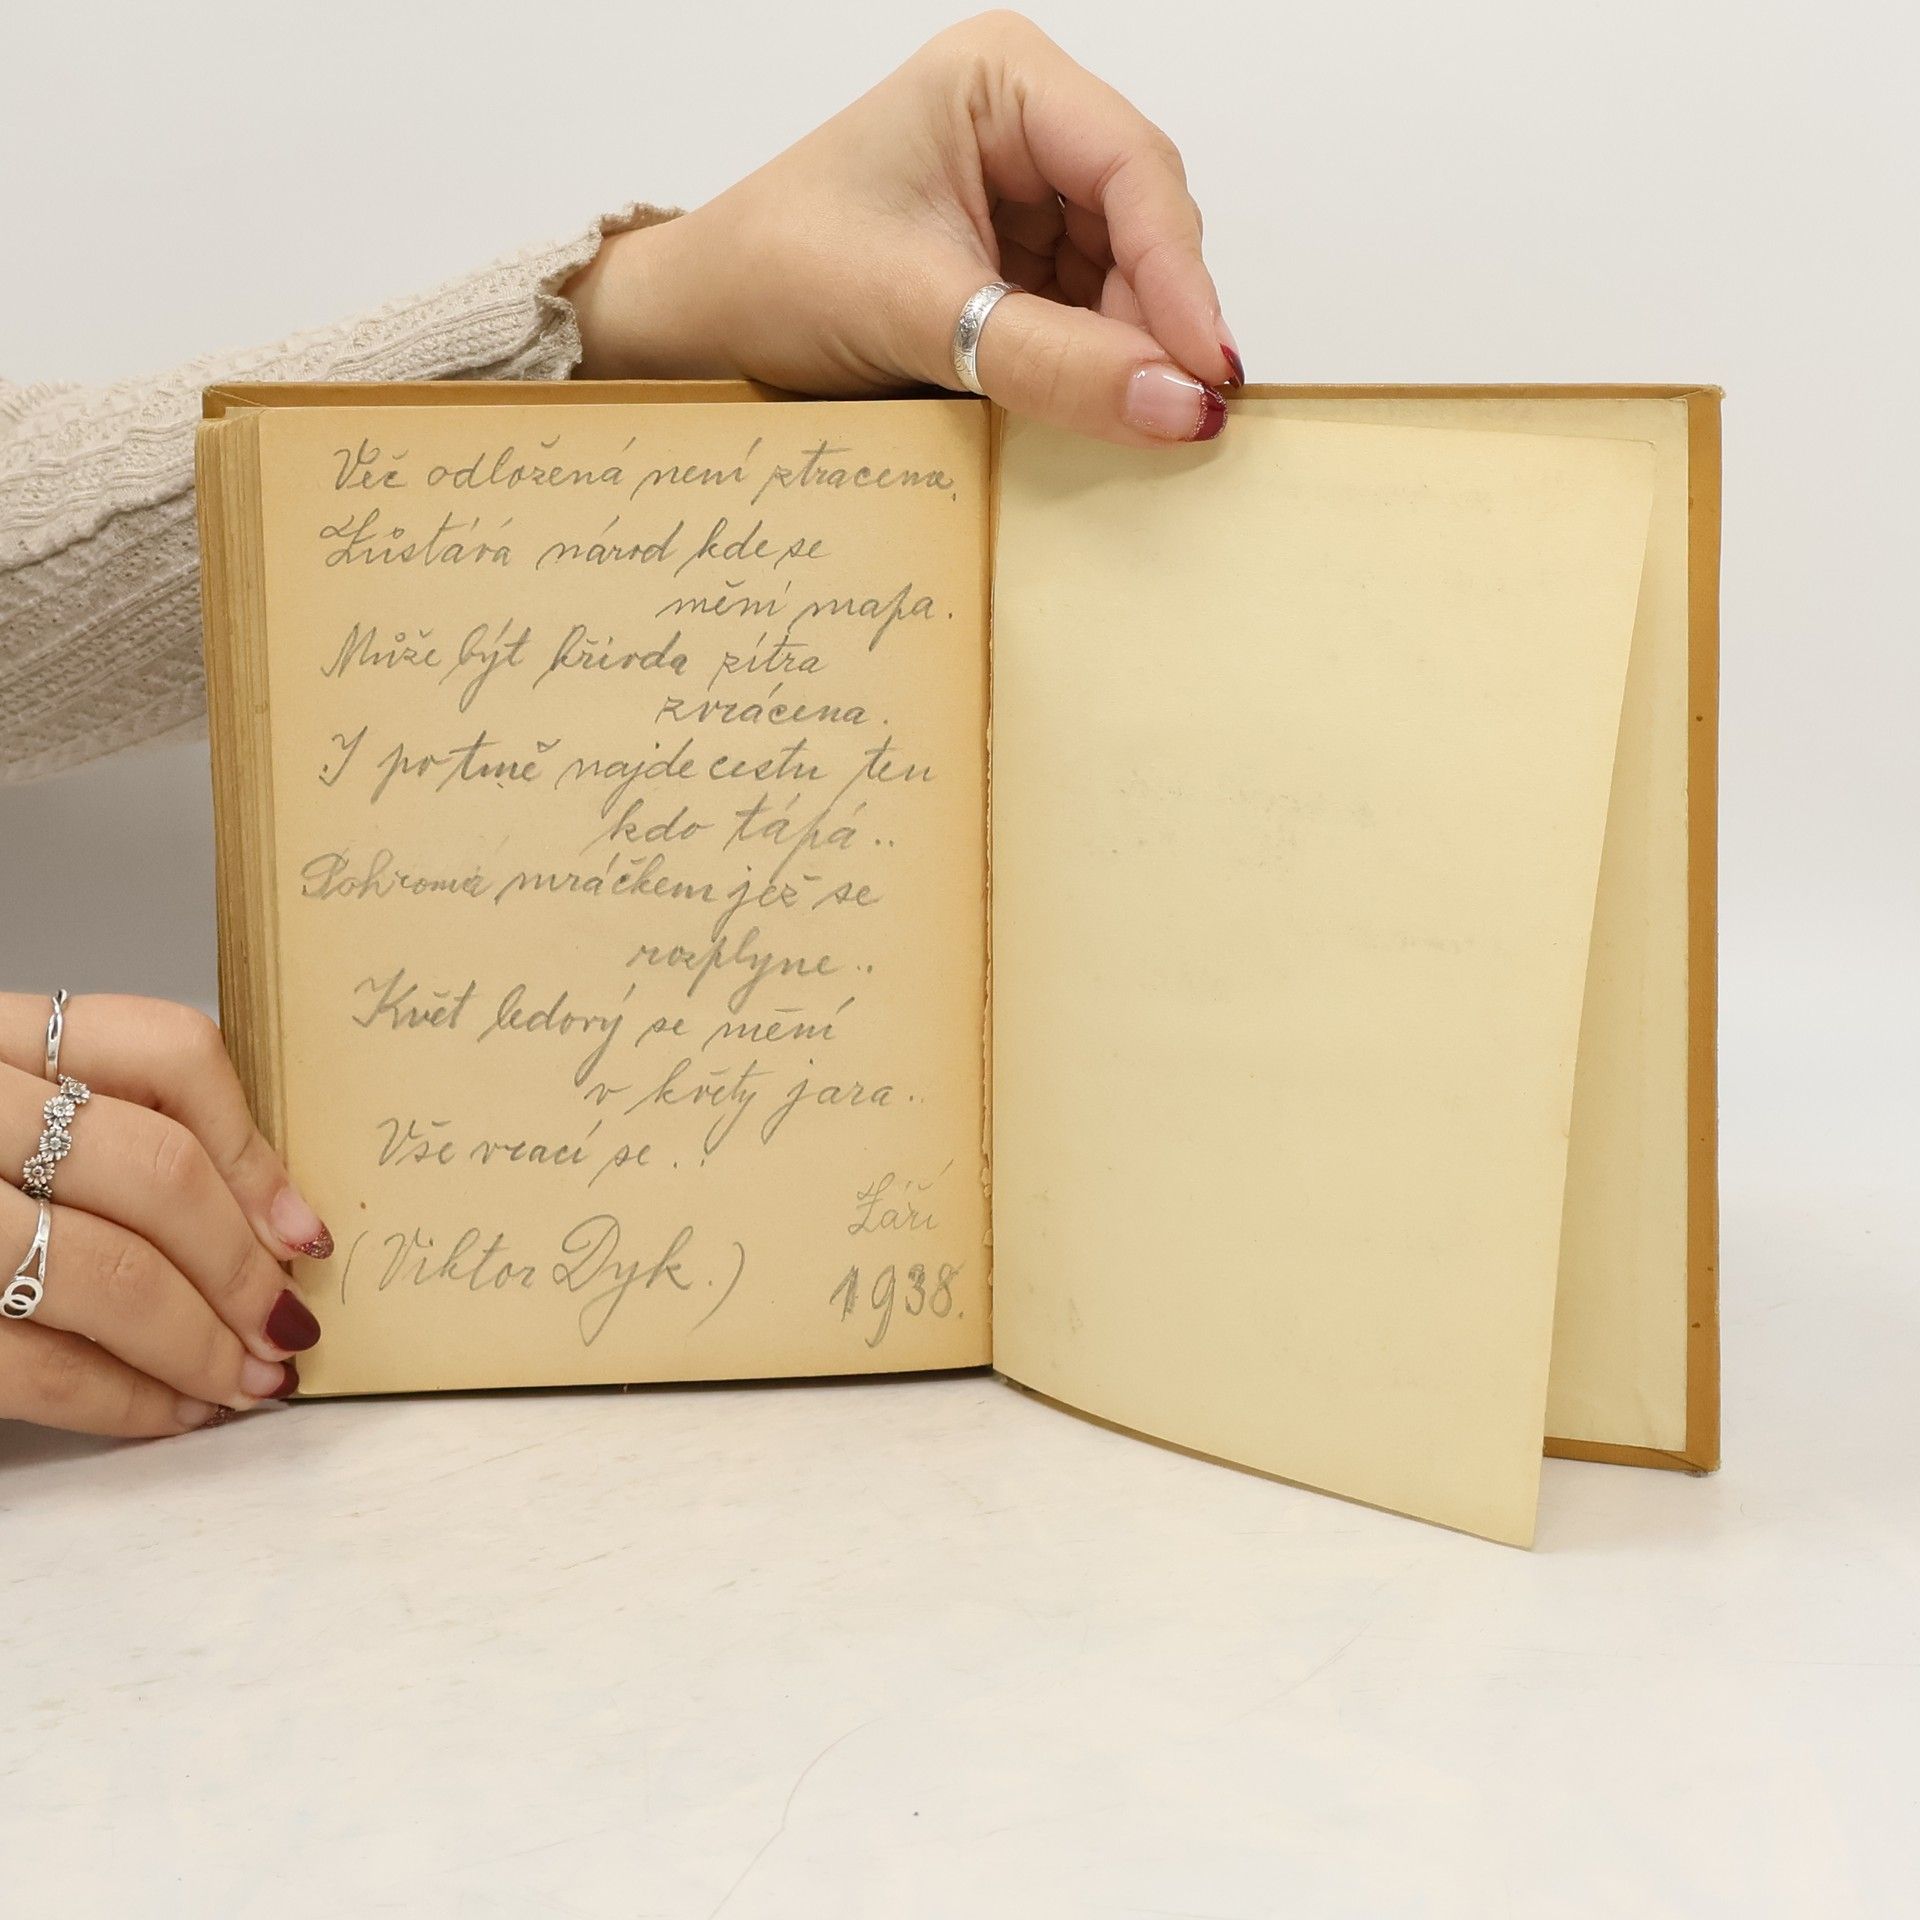 Věc odložená není ztracena.
Zůstává národ kde se
mění mapa.
Může být křivda zítra
zvrácena.
I po tmě najde cestu ten
kdo tápá..
Pohroma mráčkem jež se
rozplyne..
Květ ledový se mění
v květy jara..
Vše vrací se..
Září
(Viktor Dyk.)
1938.